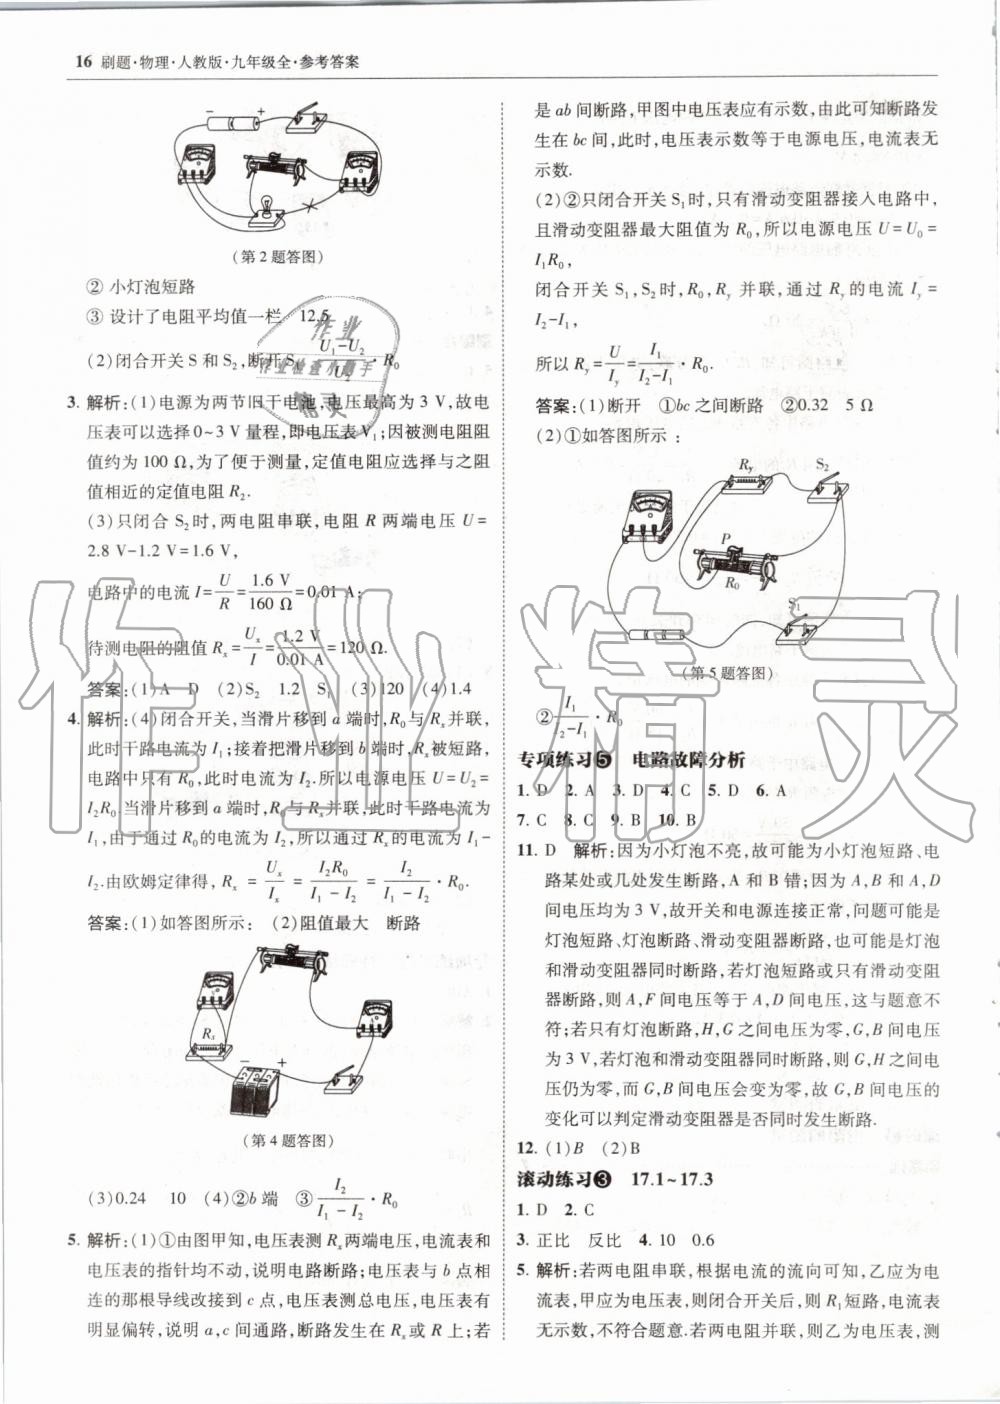 16 刷题·物理·人教版·九年级全·参考答案
− +
(第2题答图)
② 小灯泡短路
③ 设计了电阻平均值一栏 12.5
(2)闭合开关 S 和 S₂,断开 S₁ (U₁-U₂)/U₂·R₀
3. 解析:(1)电源为两节旧干电池,电压最高为 3 V,故电
压表可以选择 0~3 V 量程,即电压表 V₁;因被测电阻阻
值约为 100 Ω,为了便于测量,定值电阻应选择与之阻
值相近的定值电阻 R₂.
(3)只闭合 S₂ 时,两电阻串联,电阻 R 两端电压 U=
2.8 V-1.2 V=1.6 V,
电路中的电流 I=U/R=1.6 V/160 Ω=0.01 A;
待测电阻的阻值 Rₓ=Uₓ/I=1.2 V/0.01 A=120 Ω.
答案:(1)A D (2)S₂ 1.2 S₁ (3)120 (4)1.4
4. 解析:(4)闭合开关,当滑片移到 a 端时,R₀与 Rₓ 并联,
此时干路电流为 I₁;接着把滑片移到 b 端时,Rₓ被短路,
电路中只有 R₀,此时电流为 I₂.所以电源电压 U=U₂=
I₂R₀.当滑片移到 a 端时,R₀与 Rₓ 并联,此时干路电流为
I₁,由于通过 R₀ 的电流为 I₂,所以通过 Rₓ 的电流为 I₁-
I₂.由欧姆定律得, Rₓ = Uₓ/Iₓ = I₂R₀/(I₁-I₂) = I₂/(I₁-I₂)·R₀.
答案:(1)如答图所示: (2)阻值最大 断路
Rₓ
− +
(第4题答图)
(3)0.24 10 (4)②b 端 ③I₂/(I₁-I₂)·R₀
5. 解析:(1)①由图甲知,电压表测 Rₓ 两端电压,电流表和
电压表的指针均不动,说明电路断路;电压表与 b 点相
连的那根导线改接到 c 点,电压表测总电压,电压表有
明显偏转,说明 a,c 间通路,断路发生在 Rₓ或 R 上;若
是 ab 间断路,甲图中电压表应有示数,由此可知断路发
生在 bc 间,此时,电压表示数等于电源电压,电流表无
示数.
(2)②只闭合开关 S₁时,只有滑动变阻器接入电路中,
且滑动变阻器最大阻值为 R₀,所以电源电压 U=U₀=
I₁R₀,
闭合开关 S₁,S₂时,R₀,Rᵧ 并联,通过 Rᵧ的电流 Iᵧ=
I₂-I₁,
所以 Rᵧ=U/Iᵧ=I₁/(I₂-I₁)·R₀.
答案:(1)断开 ①bc 之间断路 ②0.32 5 Ω
(2)①如答图所示 :
Rᵧ S₂
P
R₀
S₁
(第5题答图)
②I₁/(I₂-I₁)·R₀
专项练习❺ 电路故障分析
1. D 2. A 3. D 4. C 5. D 6. A
7. C 8. C 9. B 10. B
11. D 解析:因为小灯泡不亮,故可能为小灯泡短路、电
路某处或几处发生断路,A 和 B 错;因为 A,B 和 A,D
间电压均为 3 V,故开关和电源连接正常,问题可能是
灯泡短路、灯泡断路、滑动变阻器断路,也可能是灯泡
和滑动变阻器同时断路,若灯泡短路或只有滑动变阻
器断路,则 A,F 间电压等于 A,D 间电压,这与题意不
符;若只有灯泡断路,H,G 之间电压为零,G,B 间电压
为 3 V,若灯泡和滑动变阻器同时断路,则 G,H 之间电
压仍为零,而 G,B 间电压会变为零,故 G,B 间电压的
变化可以判定滑动变阻器是否同时发生断路.
12. (1)B (2)B
滚动练习❸ 17.1~17.3
1. D 2. C
3. 正比 反比 4. 10 0.6
5. 解析:若两电阻串联,根据电流的流向可知,乙应为电
流表,甲应为电压表,则闭合开关后,则 R₁短路,电流表
无示数,不符合题意.若两电阻并联,则乙为电压表,测
作业精灵
作业
作业检查小助手
精灵